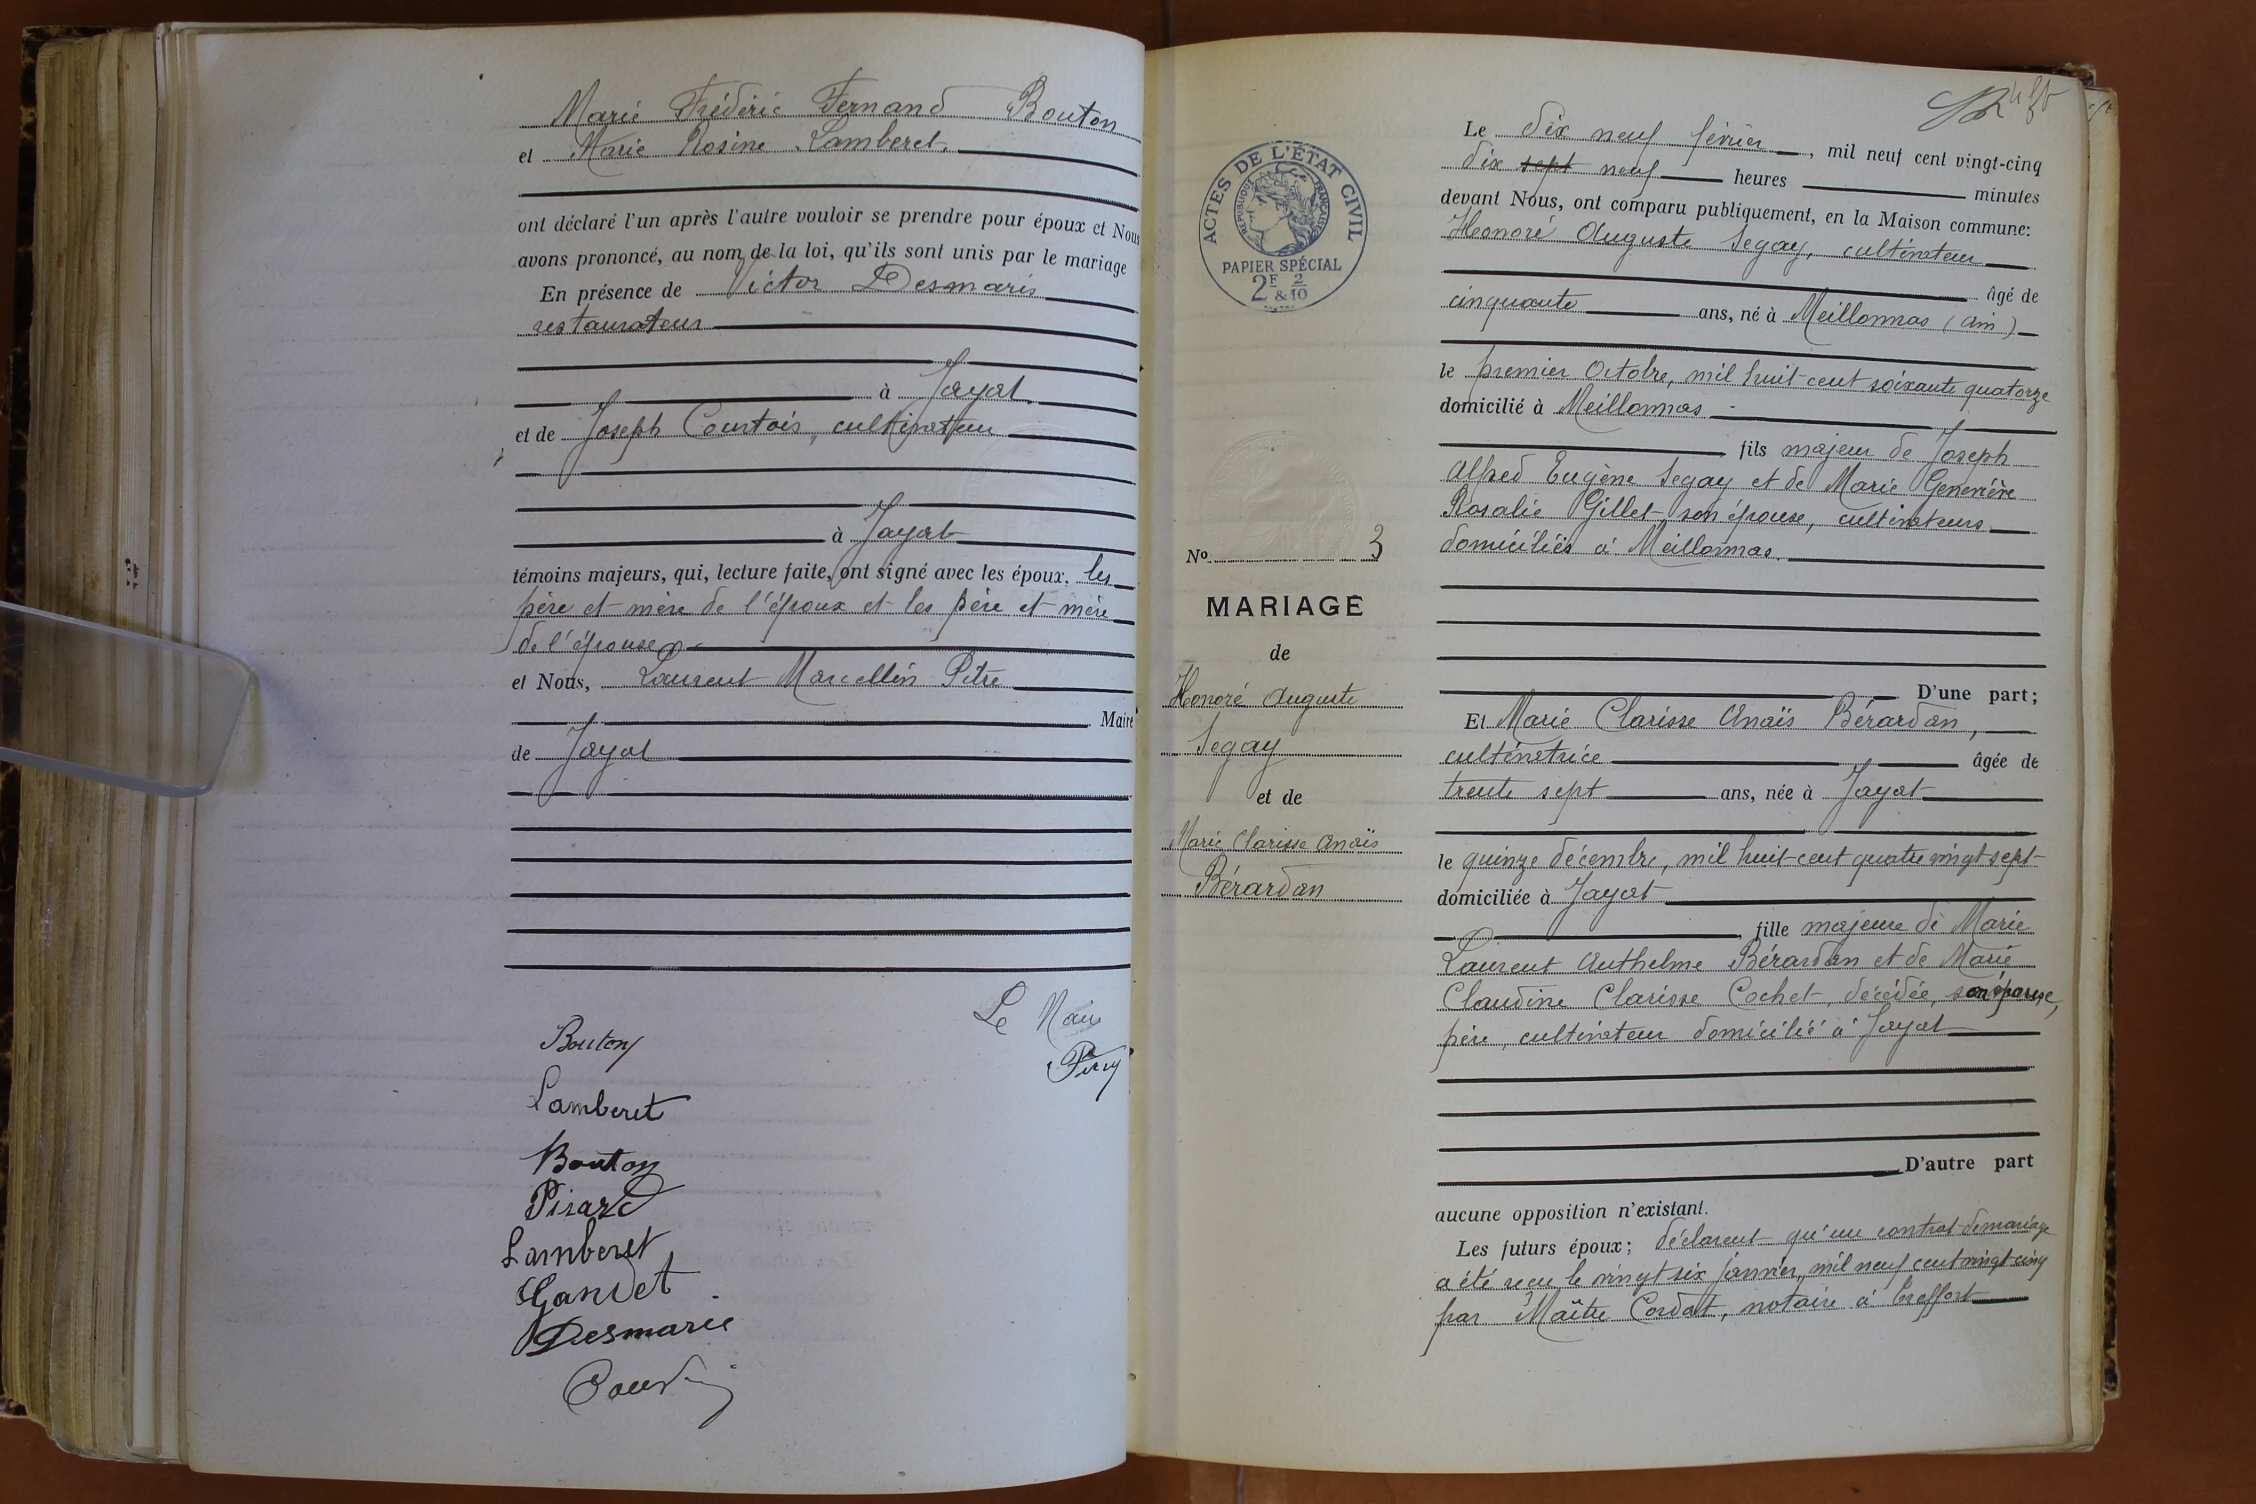 Marie Frédéric Fernand Bouton
et Marie Rosine Lamberet.
ont déclaré l'un après l'autre vouloir se prendre pour époux et Nous
avons prononcé, au nom de la loi, qu'ils sont unis par le mariage
En présence de Victor Desmaris
restaurateur
à Jayat
et de Joseph Courtois, cultivateur
à Jayat
témoins majeurs, qui, lecture faite, ont signé avec les époux, les
père et mère de l'époux et les père et mère
de l'épouse
et Nous, Laurent Marcellin Pitre
Maire
de Jayat
Le Maire
Bouton
Lamberet
Bouton
Pisard
Lamberet
Gandet
Desmaris
ACTES DE L'ÉTAT CIVIL
RÉPUBLIQUE FRANÇAISE
PAPIER SPÉCIAL
2F & 2/10
No 3
MARIAGE
de
Honoré Auguste
Segay
et de
Marie Clarisse Anaïs
Bérardan
Le dix neuf février, mil neuf cent vingt-cinq
dix sept neuf heures minutes
devant Nous, ont comparu publiquement, en la Maison commune:
Honoré Auguste Segay, cultivateur
âgé de
cinquante ans, né à Meillonnas (Ain)
le premier Octobre, mil huit cent soixante quatorze
domicilié à Meillonnas
fils majeur de Joseph
Alfred Eugène Segay et de Marie Geneviève
Rosalie Gillet son épouse, cultivateurs
domiciliés à Meillonnas.
D'une part;
Et Marie Clarisse Anaïs Bérardan,
cultivatrice âgée de
trente sept ans, née à Jayat
le quinze décembre, mil huit cent quatre vingt sept
domiciliée à Jayat
fille majeure de Marie
Laurent Anthelme Bérardan et de Marie
Claudine Clarisse Cochet, décédée, son épouse,
père, cultivateur domicilié à Jayat
D'autre part
aucune opposition n'existant.
Les futurs époux; déclarent qu'un contrat de mariage
a été reçu le vingt six janvier, mil neuf cent vingt cinq
par Maître Cordat, notaire à Treffort